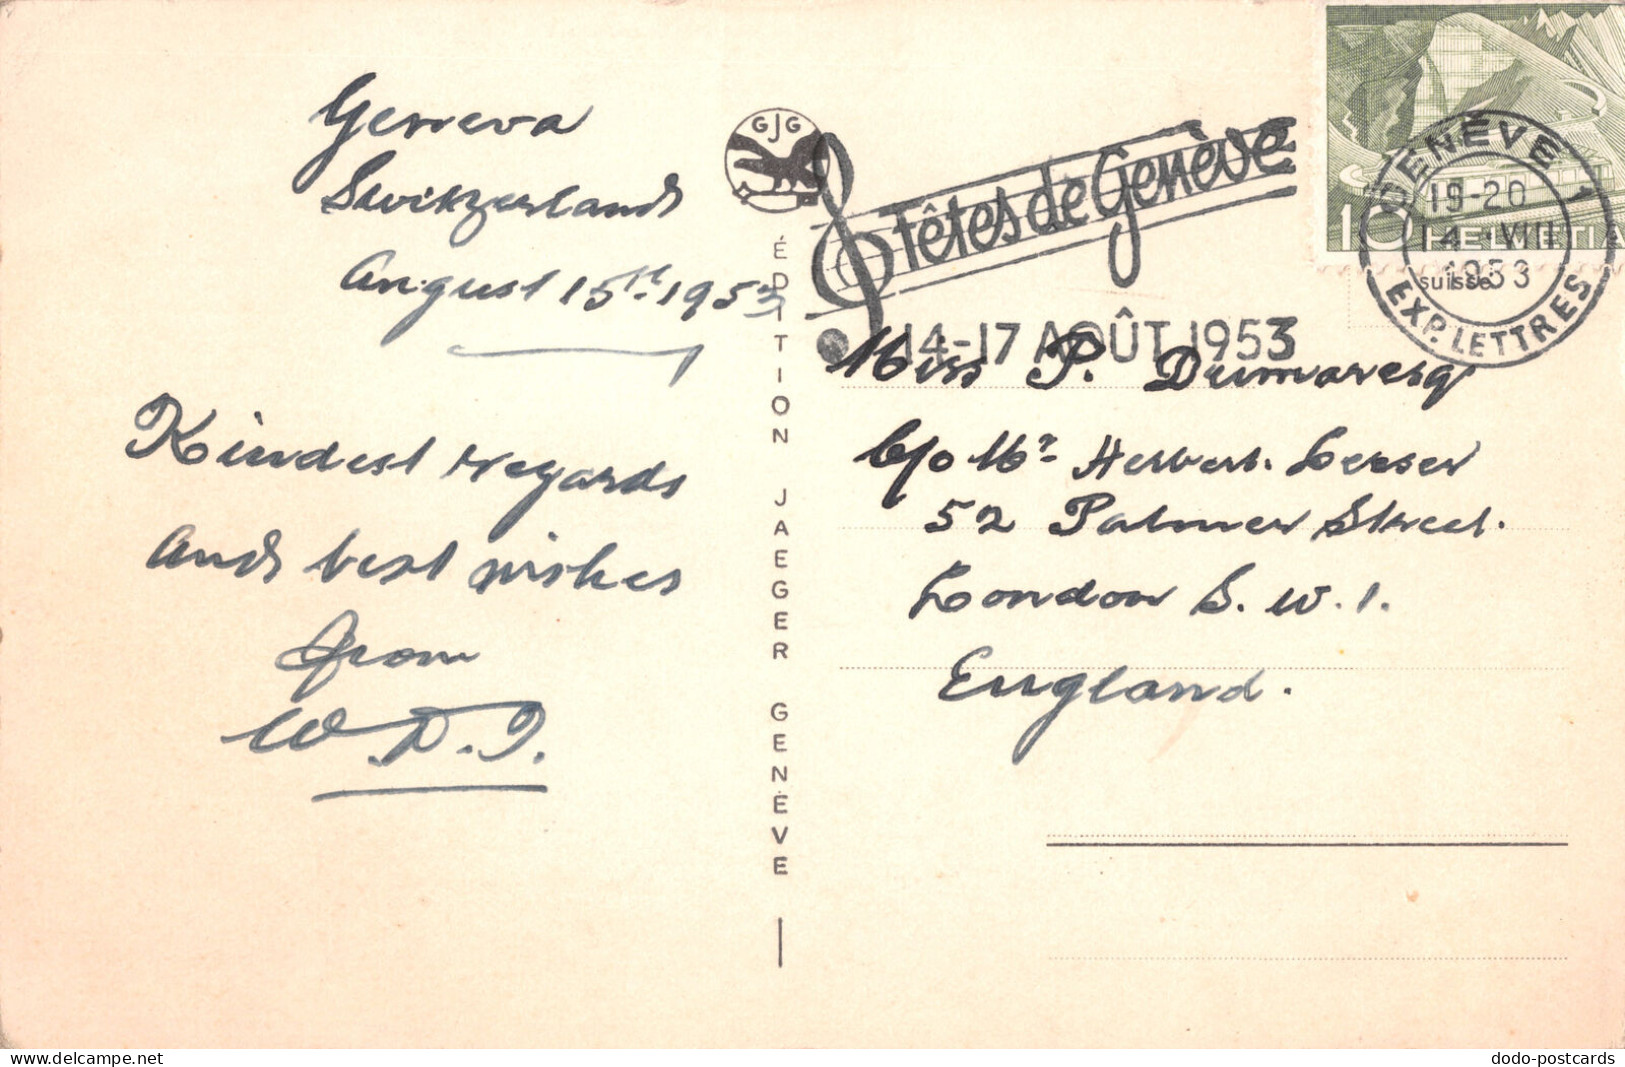 Geneva
Switzerland
August 15th. 1953
Kindest regards
and best wishes
from
W.D.J.
GJG
ÉDITION JAEGER GENÈVE
Fêtes de Genève
14-17 AOÛT 1953
GENÈVE 1
19-20
14.VIII
1953
suisse
EXP. LETTRES
10 HELVETIA
Miss P. Dumaresq
C/o Mr Herbert. Lesser
52 Palmer Street.
London S.W.1.
England.
dodo-postcards